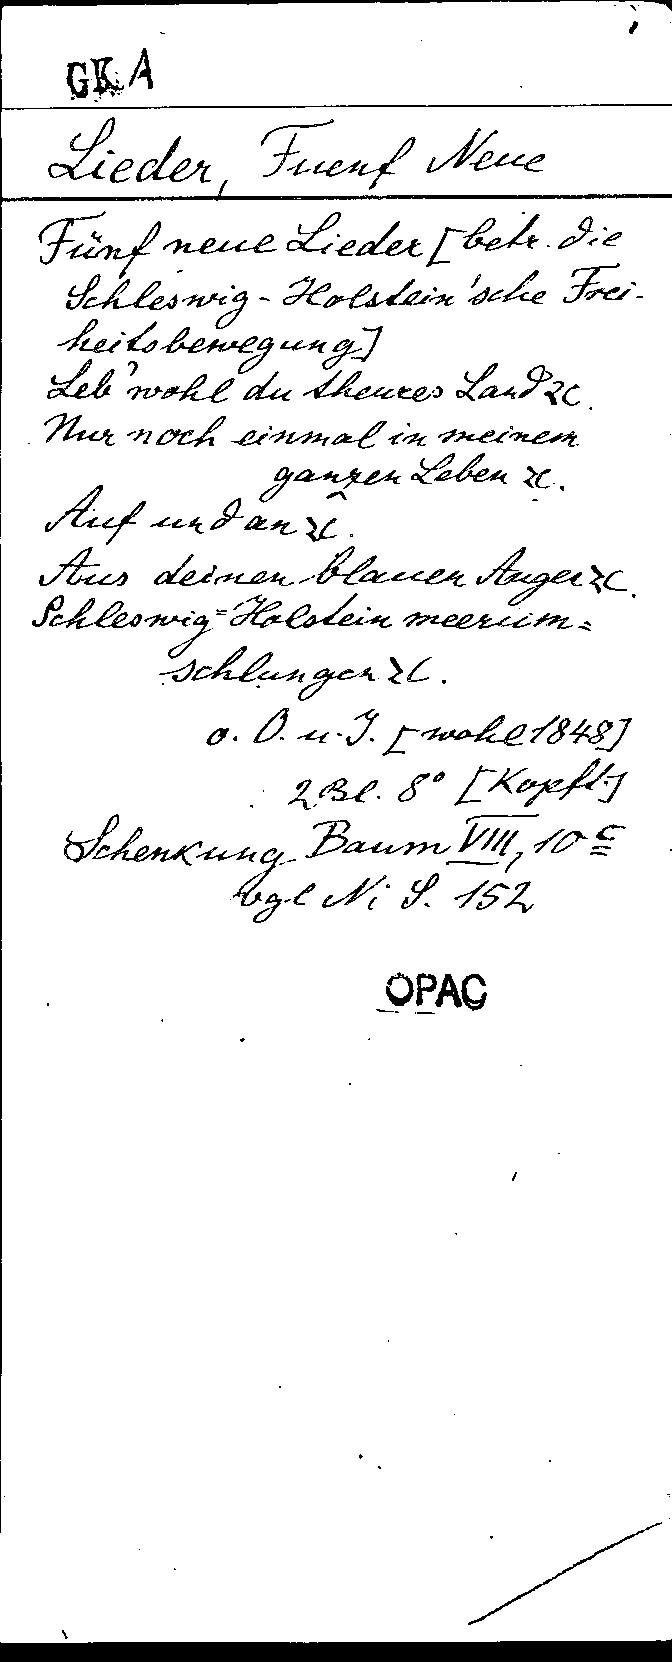 GK A
Lieder, Fuenf Neue
Fünf neue Lieder [betr. die
Schleswig-Holstein'sche Frei-
heitsbewegung]
Leb' wohl du theures Land ꝛc.
Nur noch einmal in meinem
ganzen Leben ꝛc.
Auf und an ꝛc.
Aus deinen blauen Augen ꝛc.
Schleswig=Holstein meerum=
schlungen ꝛc.
o. O. u. J. [wohl 1848]
2 Bl. 8° [Kopft.]
Schenkung Baum VIII, 10 c
vgl Ni S. 152
OPAC